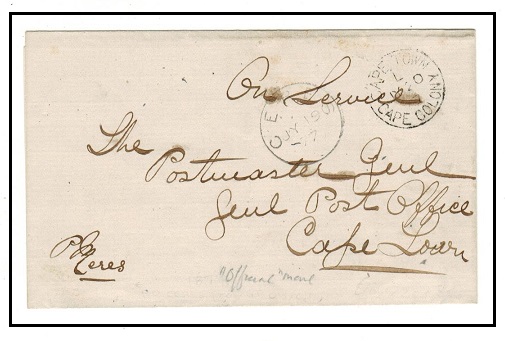 On Service
CAPE TOWN
CAPE COLONY
CE
JY 19 01
17
The
Postmaster Genl
Genl Post Office
Cape Town
Ceres
"Official" mail